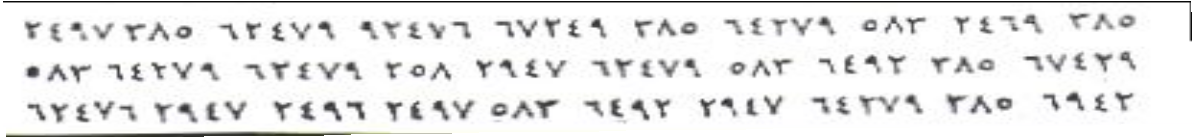 ٢٤٩٧ ٣٨٥ ٦٢٤٧٩ ٩٢٤٧٦ ٦٧٢٤٩ ٣٨٥ ٦٤٢٧٩ ٥٨٣ ٢٤٦٩ ٣٨٥
٥٨٣ ٦٤٢٧٩ ٦٢٤٧٩ ٣٥٨ ٢٩٤٧ ٦٢٤٧٩ ٥٨٣ ٦٤٩٢ ٣٨٥ ٦٧٤٢٩
٦٢٤٧٦ ٢٩٤٧ ٢٤٩٦ ٢٤٩٧ ٥٨٣ ٦٤٩٢ ٢٩٤٧ ٦٤٢٧٩ ٣٨٥ ٦٩٤٢